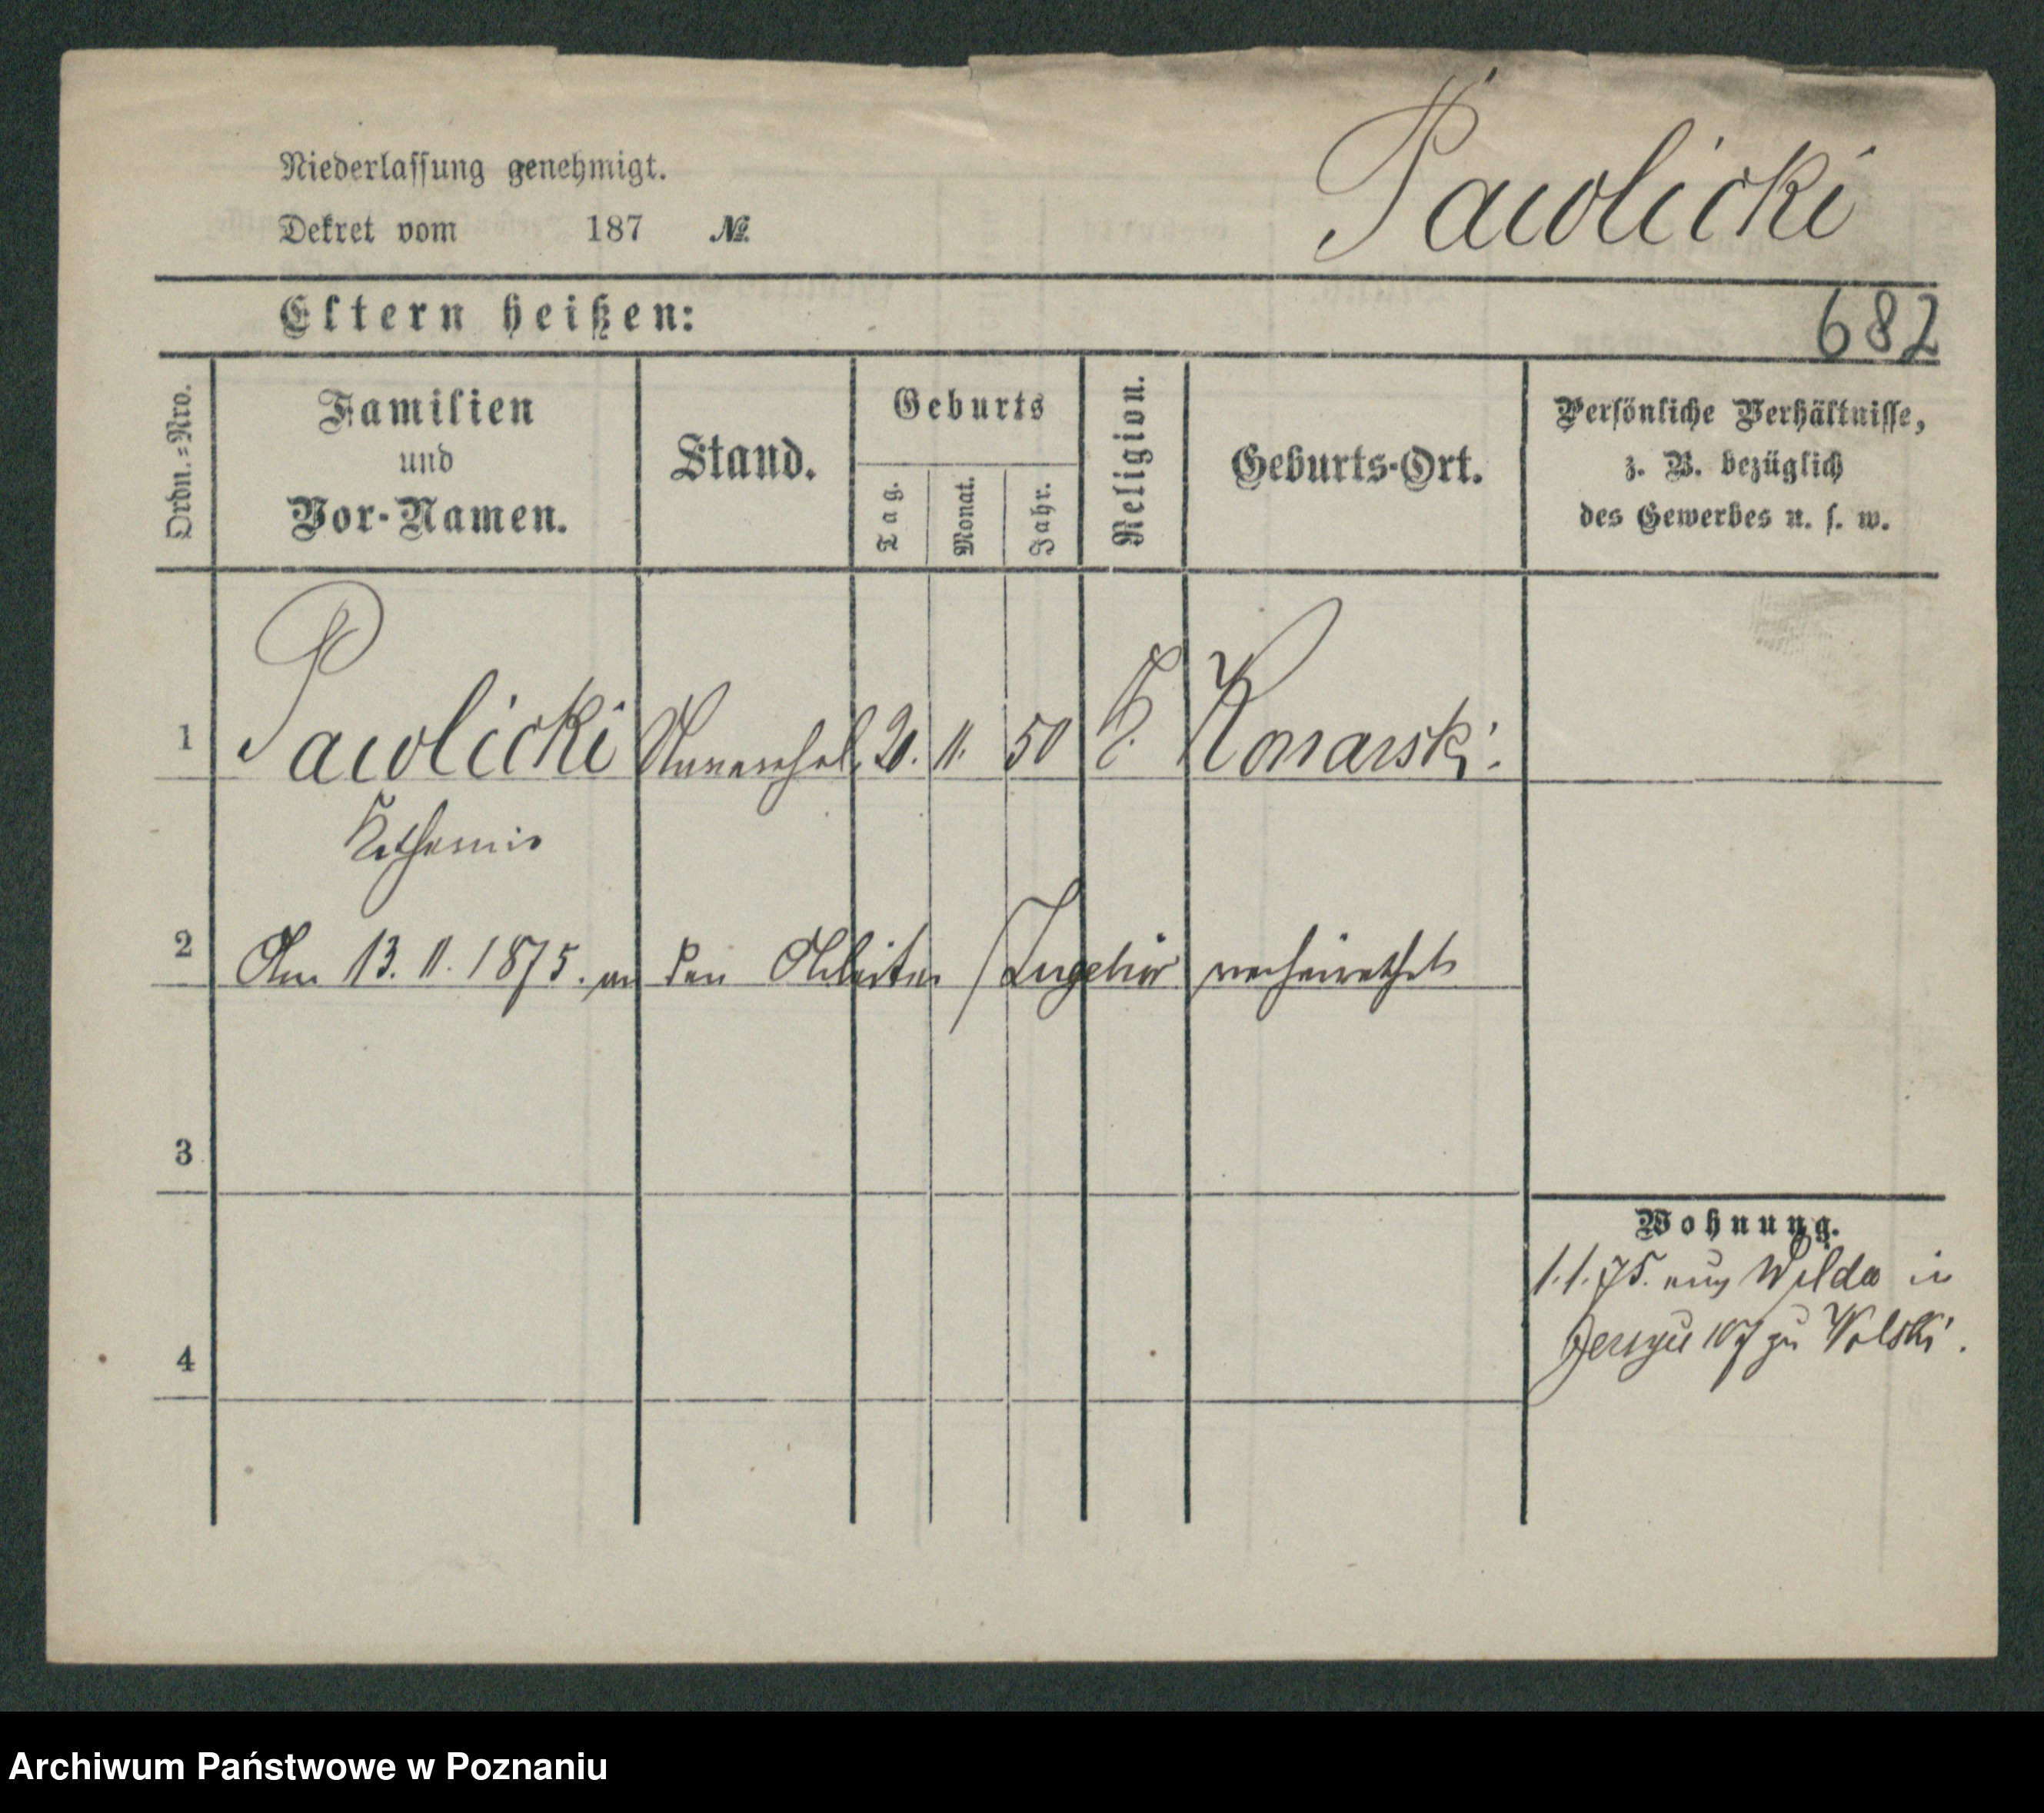 Niederlassung genehmigt.
Dekret vom 187 №.
Pawlicki
Eltern heißen:
682
Ordn.=Nro.
Familien
und
Vor-Namen.
Stand.
Geburts
Tag.
Monat.
Jahr.
Religion.
Geburts-Ort.
Persönliche Verhältnisse,
z. B. bezüglich
des Gewerbes u. s. w.
1 Pawlicki Unverehel. 20. 11. 50 K. Konarski.
Katharina
2 Am 13. 11. 1875. an den Arbeiter verheirathet
3
Wohnung.
1.1.75. aus Wilda in
4
107 zu Wolski.
Archiwum Państwowe w Poznaniu